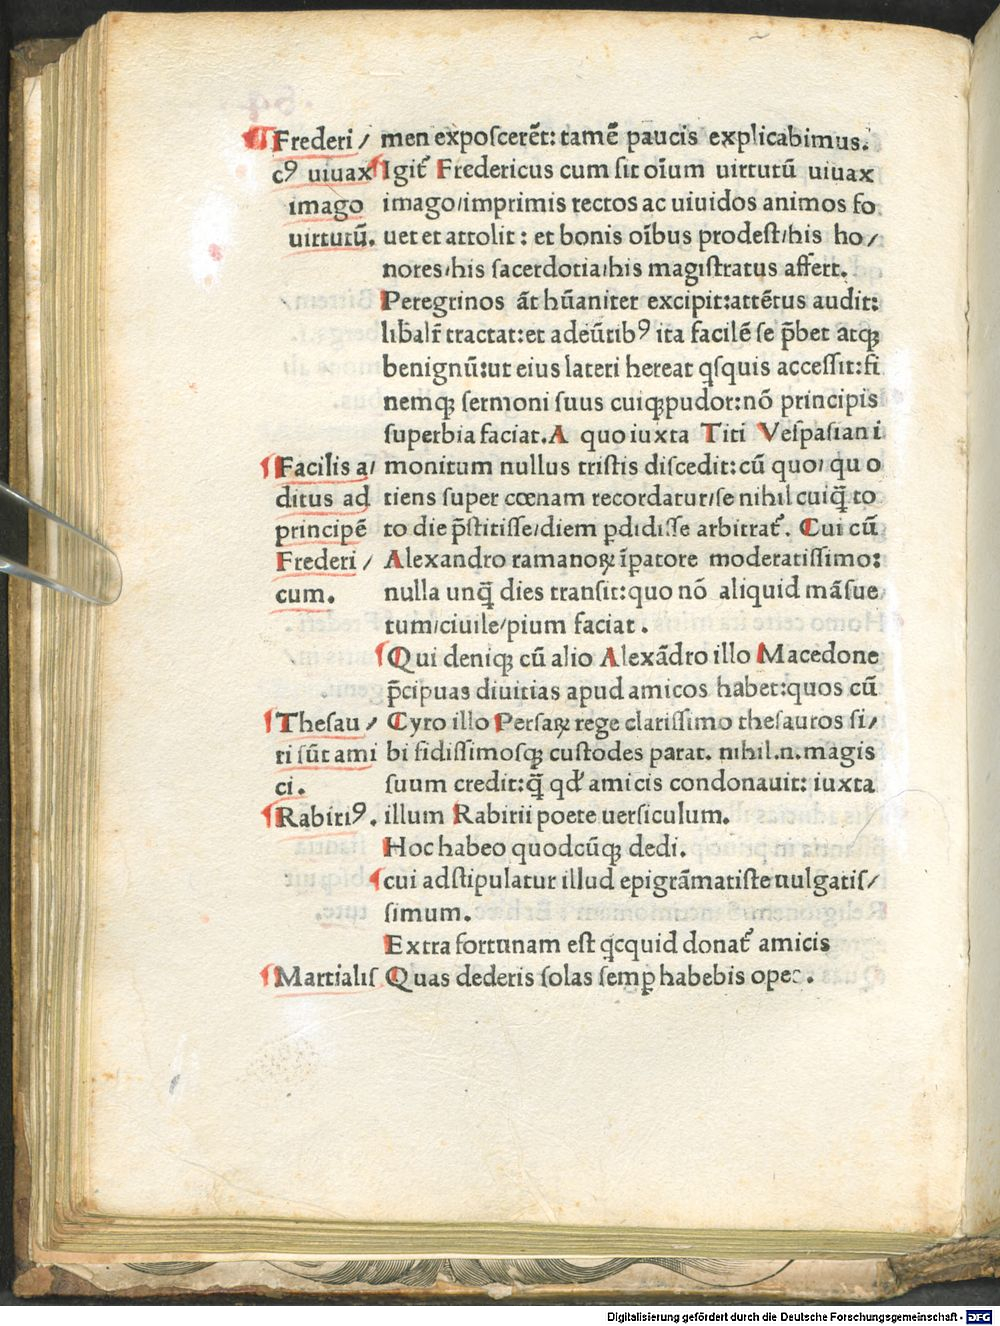 ¶Frederi/
cꝰ uiuax
imago
uirtutū.
men expoſcerēt: tamē paucis explicabimus.
¶Igit᷑ Fredericus cum ſit oīum uirtutū uiuax
imago/imprimis rectos ac uiuidos animos fo
uet et attolit: et bonis oībus prodeſt/his ho/
nores/his ſacerdotia/his magiſtratus affert.
Peregrinos āt hūaniter excipit:attētus audit:
lib̄alr̄ tractat:et adeūtibꝰ ita facilē ſe p̄bet atqꝫ
benignū:ut eius lateri hereat qſquis acceſſit:fi
nemqꝫ ſermoni ſuus cuiqꝫpudor:nō principis
ſuperbia faciat. A quo iuxta Titi Veſpaſiani
¶Facilis a/
ditus ad
principē
Frederi/
cum.
monitum nullus triſtis diſcedit:cū quo/quo
tiens ſuper cœnam recordatur/ſe nihil cuiq̄ to
to die p̄ſtitiſſe/diem ꝑdidiſſe arbitrat᷑. Cui cū
Alexandro ramanoꝝ īꝑatore moderatiſſimo:
nulla unq̄ dies tranſit:quo nō aliquid māſue
tum/ciuile/pium faciat.
¶Qui deniqꝫ cū alio Alexādro illo Macedone
p̄cipuas diuitias apud amicos habet:quos cū
¶Theſau/
ri ſūt ami
ci.
Cyro illo Perſaꝝ rege clariſſimo theſauros ſi/
bi fidiſſimoſqꝫ cuſtodes parat. nihil.n.magis
ſuum credit:q̄ qd᷑ amicis condonauit: iuxta
¶Rabiriꝰ.
illum Rabirii poete uerſiculum.
Hoc habeo quodcūqꝫ dedi.
¶cui adſtipulatur illud epigrāmatiſte uulgatiſ/
ſimum.
Extra fortunam eſt qcquid donat᷑ amicis
¶Martialiſ
Quas dederis ſolas ſemꝑ habebis opes.
Digitalisierung gefördert durch die Deutsche Forschungsgemeinschaft - DFG